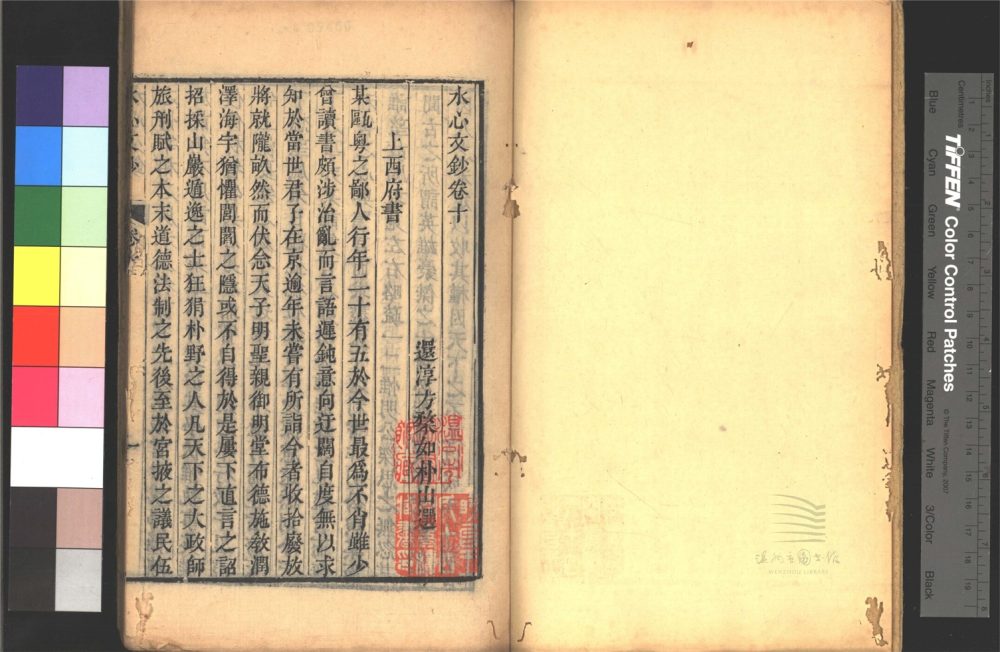 水心文鈔卷十
還淳方楘如朴山選
上西府書
某甌粤之鄙人行年二十有五於今世最爲不肖雖少
曾讀書頗涉治亂而言語遲鈍意向迂闊自度無以求
知於當世君子在京逾年未嘗有所詣今者收拾廢放
將就隴畝然而伏念天子明聖親御明堂布德施教潤
澤海宇猶懼閭閻之隱或不自得於是屢下直言之詔
招採山巖遁逸之士狂狷朴野之人凡天下之大政師
旅刑賦之本末道德法制之先後至於宮掖之議民伍
水心文鈔
Inches
Centimetres
TIFFEN Color Control Patches
© The Tiffen Company, 2007
Blue
Cyan
Green
Yellow
Red
Magenta
White
3/Color
Black
WENZHOU LIBRARY